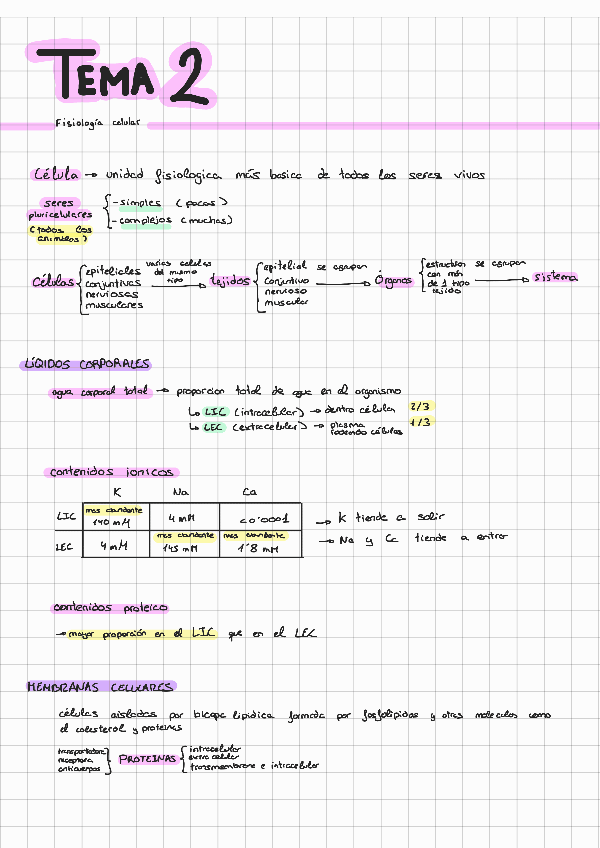 TEMA 2
Fisiología celular
Célula → unidad fisiologica más basica de todos los seres vivos
seres pluricelulares (todos los animales)
- simples (pocas)
- complejos (muchas)
Células
epiteliales
conjuntivas
nerviosas
musculares
varias celulas del mismo tipo
tejidos
epitelial
conjuntivo
nervioso
muscular
se agrupan
Órganos
estructuras con más de 1 tipo tejido
se agrupan
sistema
LÍQUIDOS CORPORALES
agua corporal total → proporcion total de agua en el organismo
↳ LIC (intracelular) → dentro célula 2/3
↳ LEC (extracelular) → plasma rodeando células 1/3
contenidos ionicos
K Na Ca
LIC mas abundante 140 mM 4 mM <0'0001
LEC 4 mM mas abundante 145 mM mas abundante 1'8 mM
→ K tiende a salir
→ Na y Ca tiende a entrar
contenidos proteico
→ mayor proporción en el LIC que en el LEC
MEMBRANAS CELULARES
células aisladas por bicapa lipidica formada por fosfolipidos y otras moleculas como
el colesterol y proteinas
transportadora
receptora
anticuerpos
PROTEINAS
intracelular
extra celular
transmembrana e intracelular